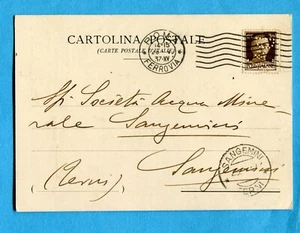 CARTOLINA POSTALE
(CARTE POSTALE D'ITALIE)
FERROVIA
Spl. Società Acqua Mine-
rale Sangemini
Sangemini
(Terni)
SANGEMINI
TERNI